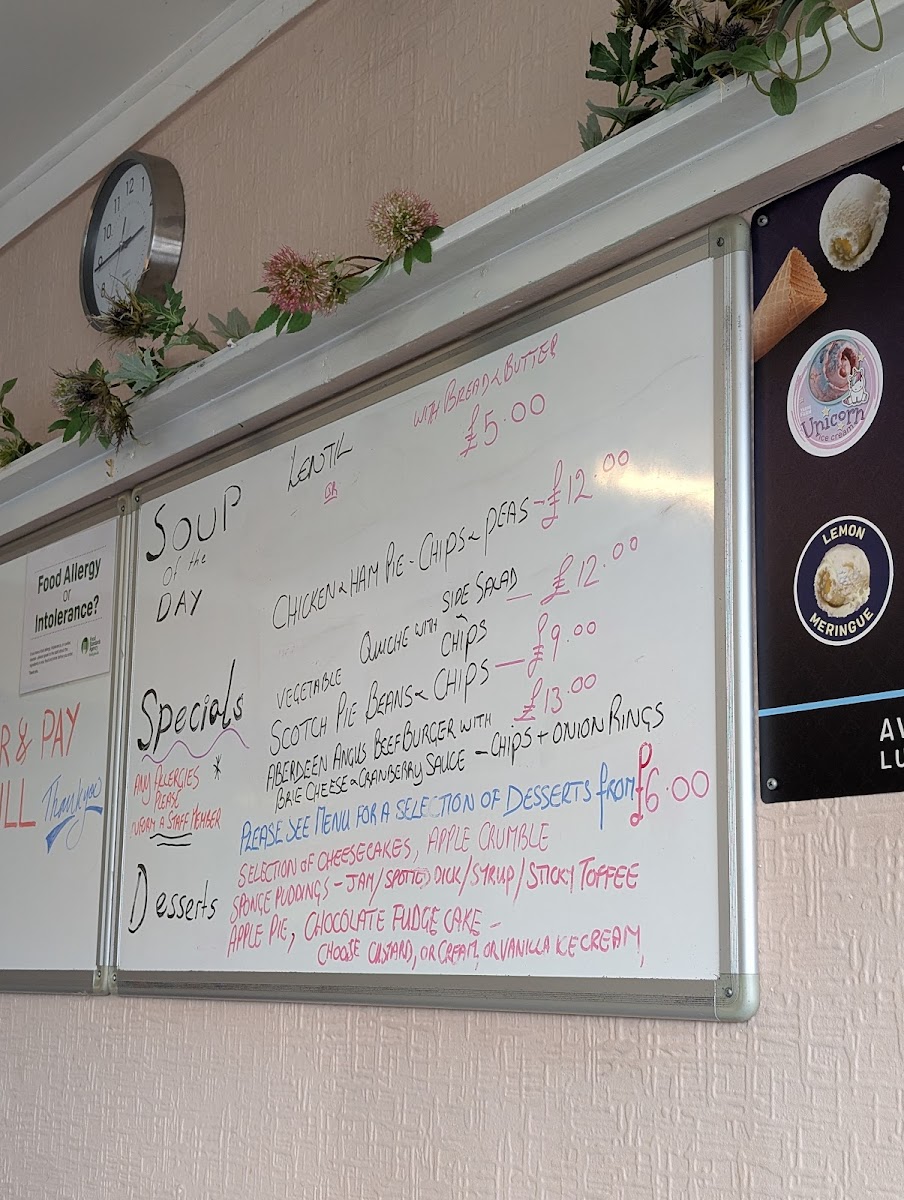 12
1
11
10
8
Food Allergy
or
Intolerance?
R & PAY
LL Thankyou
SOUP
Of the
DAY
LENTIL
OR
WITH BREAD & BUTTER
£5.00
Specials
ANY ALLERGIES *
PLEASE
INFORM A STAFF MEMBER
CHICKEN & HAM PIE - CHIPS & PEAS - £12.00
VEGETABLE QUICHE WITH SIDE SALAD & CHIPS - £12.00
SCOTCH PIE BEANS & CHIPS - £9.00
ABERDEEN ANGUS BEEFBURGER WITH £13.00
BRIE CHEESE & CRANBERRY SAUCE - CHIPS + ONION RINGS
PLEASE SEE MENU FOR A SELECTION OF DESSERTS from £6.00
Desserts
SELECTION OF CHEESECAKES, APPLE CRUMBLE
SPONGE PUDDINGS - JAM/SPOTTED DICK/SYRUP/STICKY TOFFEE
APPLE PIE, CHOCOLATE FUDGE CAKE -
CHOOSE CUSTARD, OR CREAM, OR VANILLA ICE CREAM,
Unicorn
ice cream
LEMON
MERINGUE
AV
LU